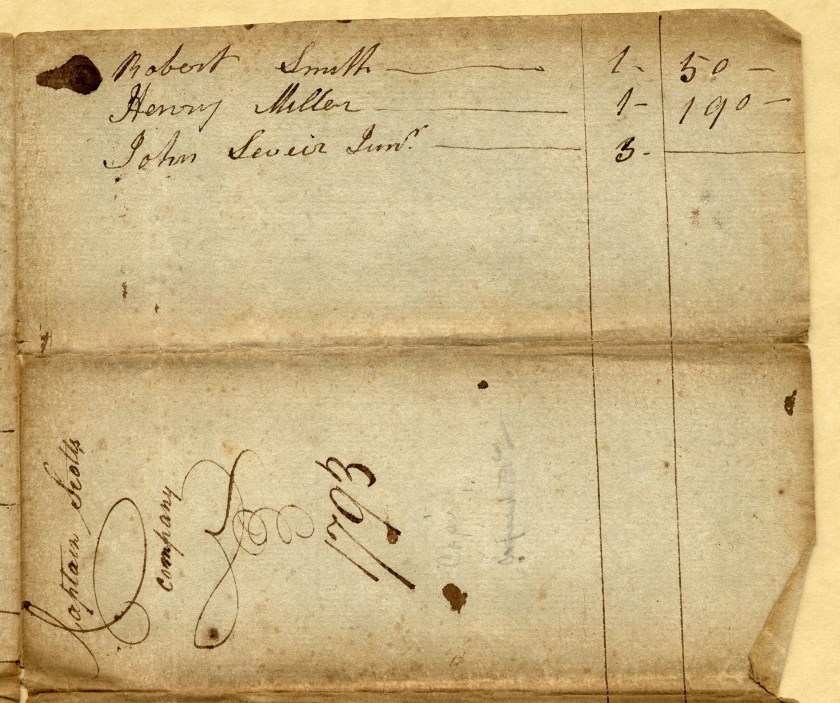 Robert Smith — 1- 50 -
Henry Miller — 1- 190 -
John Seveir Junr. — 3- —
Captain Scotts
company
1793